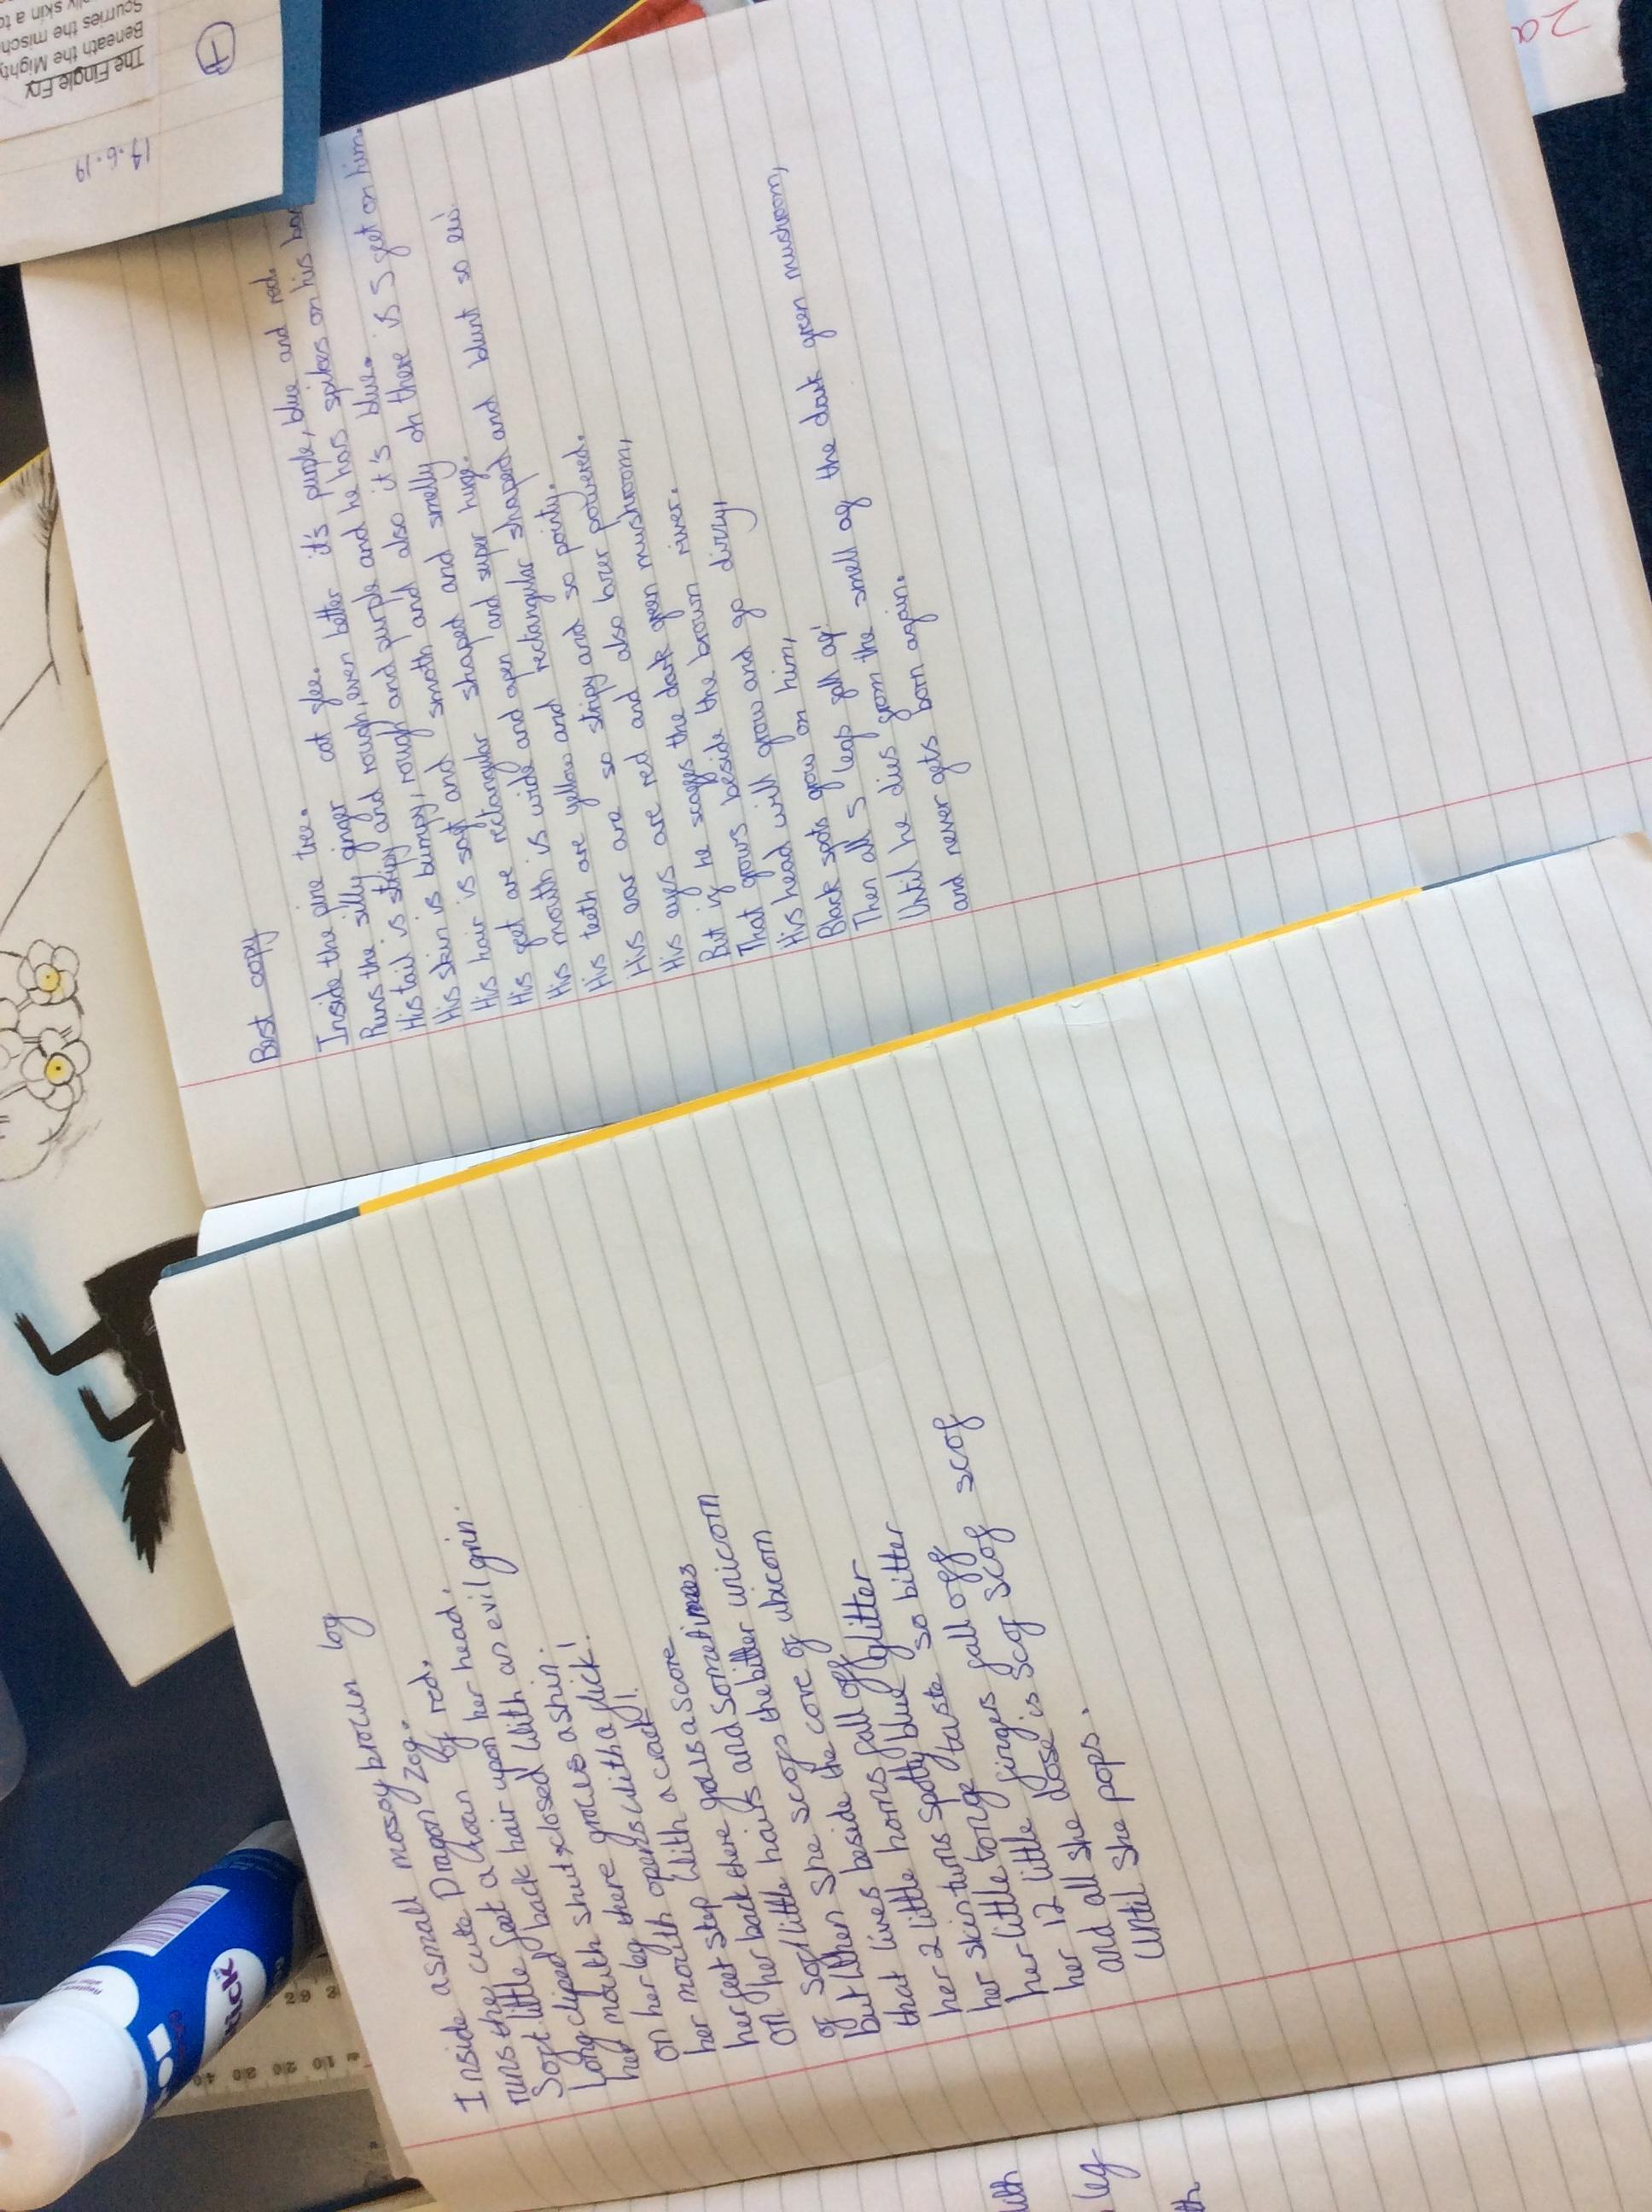 Best copy
Inside the pine tree.
Runs the silly ginger cat glee.
His tail is stripy and rough, even better it's purple, blue and red.
His skin is bumpy, rough and purple and he has spikes on his
His hair is soft and smooth and also it's blue.
His feet are rectangular shaped and smelly oh there is 5 feet on him.
His mouth is wide and open and super huge.
His teeth are yellow and rectangular shaped and blunt so
His ear are so stripy and so pointy.
His eyes are red and also lazer powered.
But if he scoffs the dark green mushroom,
That grows beside the brown river.
His head will grow and go dizzy,
Black spots grow on him,
Then all 5 legs fall of'
Until he dies from the smell of the dark green mushroom,
and never gets born again.
Inside a small mossy brown log
runs the cute Dragon zog.
Soft little feet a of red.
Long cliped back hair upon her head.
her mouth shut & closed With an evil grin.
on her leg there grows a shin.
her mouth opens With a flick!
her feet step With a crack!!
her back there gows a score
On her little hairs and Sometimes
of soft little the bitter unicorn
but When She scofs the core of ubicorn
that lives beside the
her 2 little horns fall off
her skin turns Spotty blue glitter
her little tonge taste so bitter
her 12 little finges fall off
and all she dose is Scof scof scof
Until She pops.
The Fingle Fry
Beneath the Mighty
Scurries the misch
skin a to
19.6.19
2a
leg